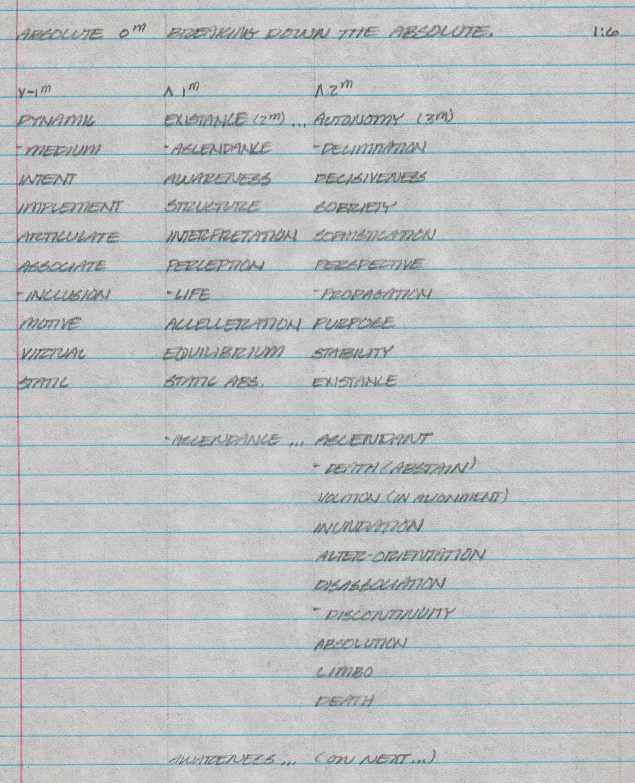 ABSOLUTE 0^m BREAKING DOWN THE ABSOLUTE. 1:6
V-1^m Λ 1^m Λ 2^m
DYNAMIC EXISTANCE (2^m)... AUTONOMY (3^m)
-MEDIUM -ASCENDANCE -DELIMITATION
INTENT AWARENESS DECISIVENESS
IMPLEMENT STRUCTURE SOBRIETY
ARTICULATE INTERPRETATION SOPHISTICATION
ASSOCIATE PERCEPTION PERSPECTIVE
-INCLUSION -LIFE -PROPAGATION
MOTIVE ACCELLERATION PURPOSE
VIRTUAL EQUILIBRIUM STABILITY
STATIC STATIC ABS. EXISTANCE
-ASCENDANCE... ASCENDANT
-DEATH (ABSTAIN)
VOLITION (IN ALIGNMENT)
INUNDATION
ALTER-ORIENTATION
DISASSOCIATION
-DISCONTINUITY
ABSOLUTION
LIMBO
DEATH
AWARENESS... (ON NEXT...)